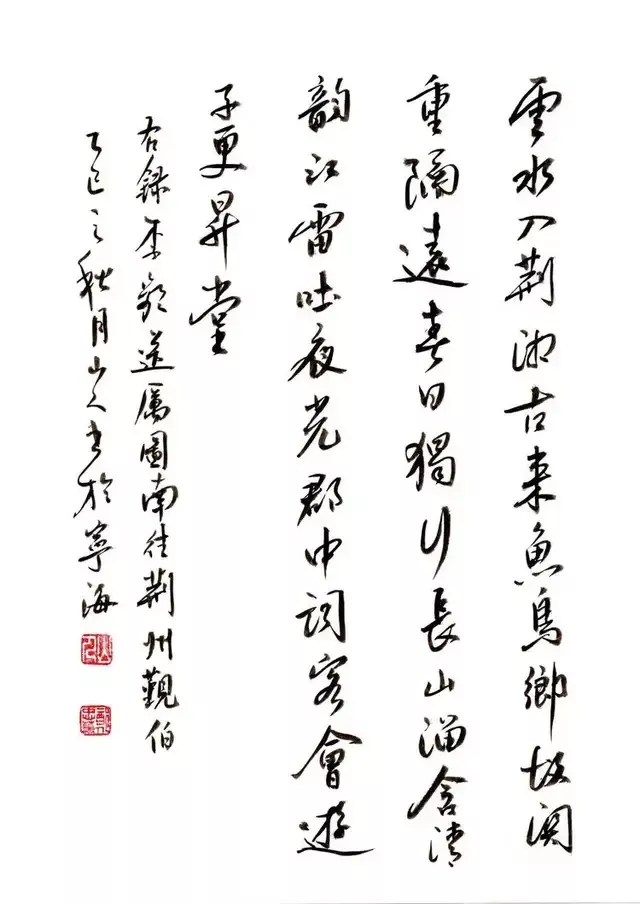 雲水入荊湘古來魚鳥鄉故關
重隔遠春日獨行長山溜含清
韵江雷吐夜光郡中詞客會遊
子更昇堂
右錄李頻送厲圖南往荊州覲伯
乙巳之秋月山人書於寧海